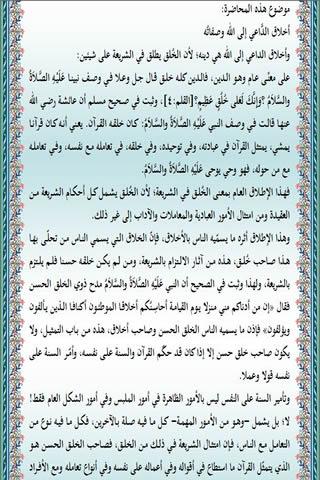 موضوع هذه المحاضرة:
أخلاق الدَّاعي إلى الله وصفاتُه
وأخلاق الداعي إلى الله هي دينه؛ لأن الخُلق يطلق في الشريعة على شيئين:
على معنًى عام وهو الدين، فالدين كله خلق قال جل وعلا في وصف نبينا عَلَيْهِ الصَّلاَةُ
والسَّلاَمُ ?وَإِنَّكَ لَعَلى خُلُقٍ عَظِيمٍ?[القلم:٤]، وثبت في صحيح مسلم أن عائشة رضي الله
عنها قالت في وصف النبي عَلَيْهِ الصَّلاَةُ والسَّلاَمُ: كان خلقه القرآن. يعني أنه كان قرآنا
يمشي، يمتثل القرآن في عبادته، وفي توحيده، وفي خلقه، في تعامله مع نفسه، وفي تعامله
مع من حوله، فهو وحي يوحى عَلَيْهِ الصَّلاَةُ والسَّلاَمُ.
فهذا الإطلاق العام بمعنى الخُلق في الشريعة؛ لأن الخلق يشمل كل أحكام الشريعة من
العقيدة ومن امتثال الأمور العبادية والمعاملات والآداب إلى غير ذلك.
وهذا الإطلاق أثره ما يسمّيه الناس بالأخلاق، فإنّ الخلاق التي يسمي الناس من تحلّى بها
هذا صاحب خُلق، هذه من آثار الالتزام بالشريعة، ومن لم يكن خلقه حسنا فلم يلتزم
بالشريعة، ولهذا وثبت في الصحيح أن النبي عَلَيْهِ الصَّلاَةُ والسَّلاَمُ مدح ذوي الخلق الحسن
فقال «إن من أدناكم مني منزلا يوم القيامة أحاسِنُكم أخلاقا الموطئون أكنافا الذين يألفون
ويؤلفون» فإذن ما يسميه الناس الخلق الحسن وصاحب أخلاق، هذه من باب التمثيل، ولا
يكون صاحب خلق حسن إلا إذا كان قد حكّم القرآن والسنة على نفسه، وأمّر السنة على
نفسه قولا وعملا.
وتأمير السنة على النفس ليس بالأمور الظاهرة في أمور الملبس وفي أمور الشكل العام فقط!
لا؛ بل يشمل -وهو من الأمور المهمة- كل ما فيه صلة بالآخرين، فكل ما فيه نوع من
التعامل مع الناس، فإن امتثال الشريعة في ذلك من الخلق، فصاحب الخلق الحسن هو
الذي يتمثّل القرآن ما استطاع في أقواله وفي أعماله على نفسه وفي أنواع تعامله مع الأفراد